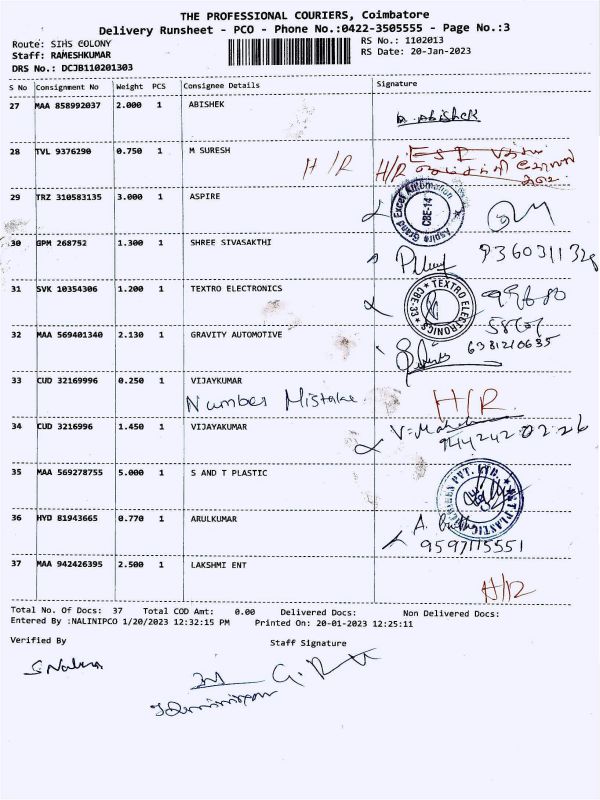 THE PROFESSIONAL COURIERS, Coimbatore
Delivery Runsheet - PCO - Phone No.:0422-3505555 - Page No.:3
Route: SIHS COLONY
RS No.: 1102013
Staff: RAMESHKUMAR
RS Date: 20-Jan-2023
DRS No.: DCJB110201303
S No Consignment No Weight PCS Consignee Details Signature
27 MAA 858992037 2.000 1 ABISHEK
Abishek
28 TVL 9376290 0.750 1 M SURESH
H/R H/R
29 TRZ 310583135 3.000 1 ASPIRE
Aspire Grand Excel Automation
CBE-14
30 GPM 268752 1.300 1 SHREE SIVASAKTHI
31 SVK 10354306 1.200 1 TEXTRO ELECTRONICS
TEXTRO ELECTRONICS
CBE-33
32 MAA 569401340 2.130 1 GRAVITY AUTOMOTIVE
6381210635
33 CUD 32169996 0.250 1 VIJAYKUMAR
Number Mistake H/R
34 CUD 3216996 1.450 1 VIJAYAKUMAR
35 MAA 569278755 5.000 1 S AND T PLASTIC
36 HYD 81943665 0.770 1 ARULKUMAR
9597115551
37 MAA 942426395 2.500 1 LAKSHMI ENT
H/R
Total No. Of Docs: 37 Total COD Amt: 0.00 Delivered Docs: Non Delivered Docs:
Entered By :NALINIPCO 1/20/2023 12:32:15 PM Printed On: 20-01-2023 12:25:11
Verified By
Staff Signature